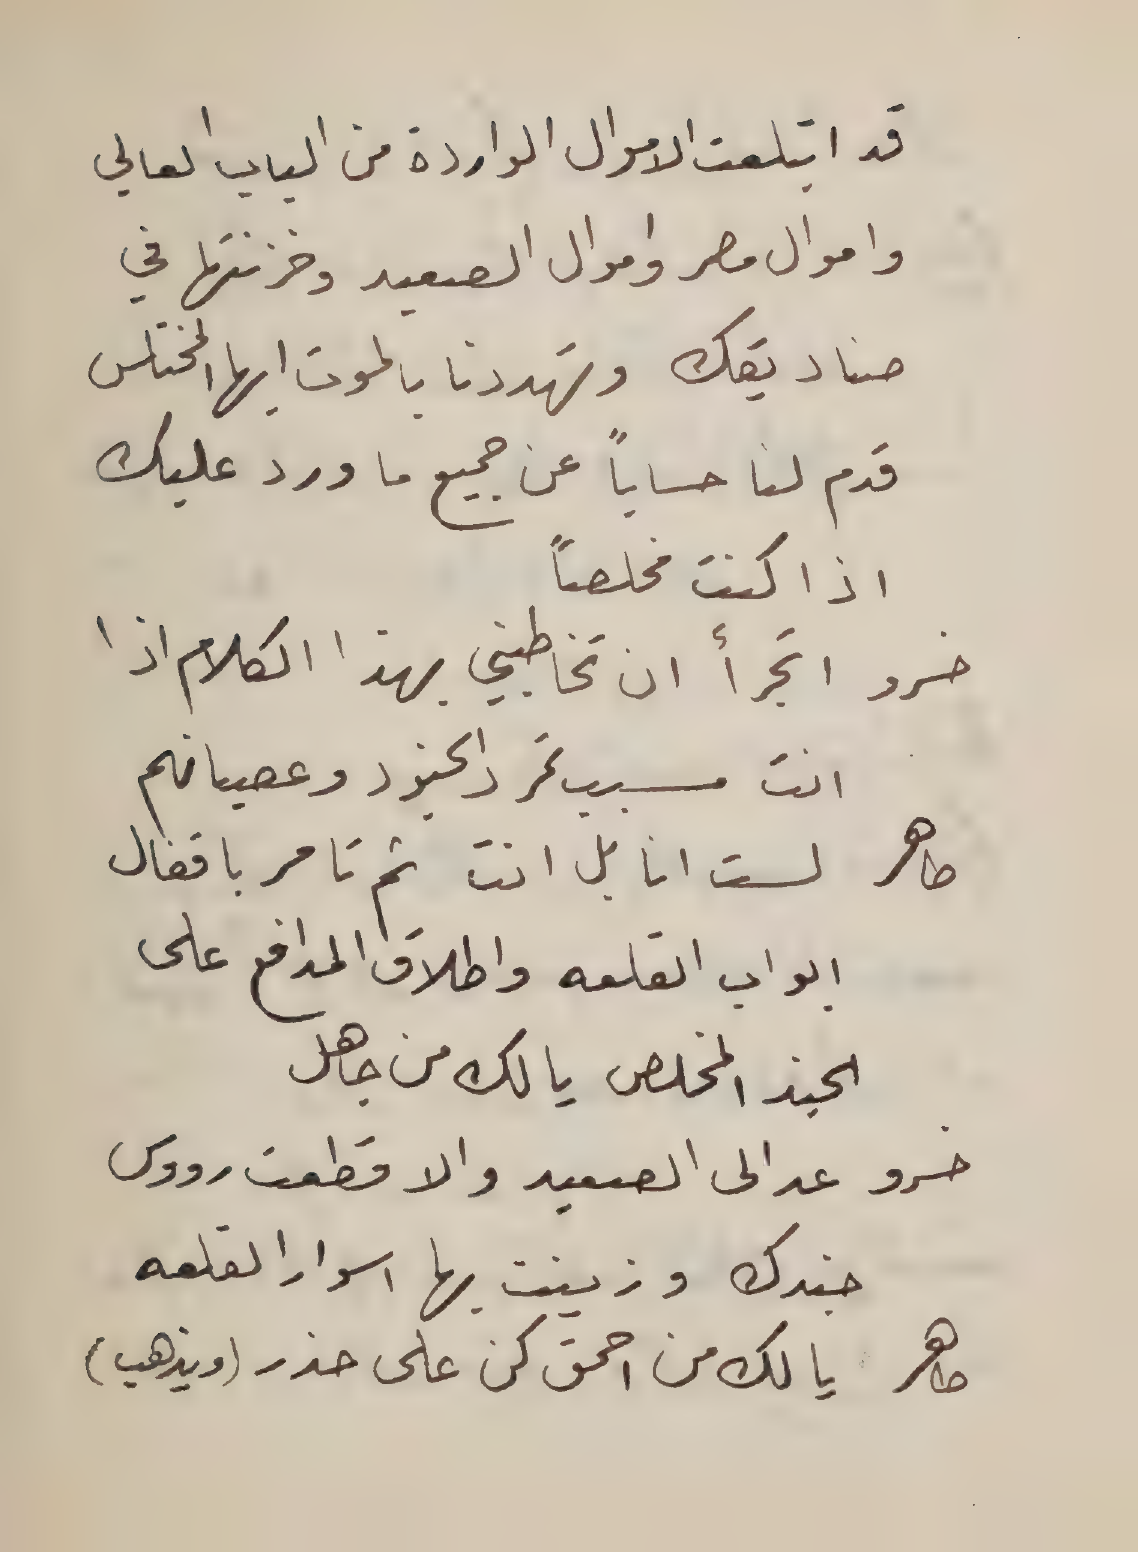 قد ابتلعت الاموال الواردة من الباب العالي
واموال مصر واموال الصعيد وخزنتها في
صناديقك وتهددنا بالموت ايها المختلس
قدم لنا حساباً عن جميع ما ورد عليك
اذا كنت مخلصاً
خسرو اتجرأ ان تخاطبني بهذا الكلام اذا
انت مسبب تمرد الجنود وعصيانهم
طاهر لست انا بل انت ثم تامر باقفال
ابواب القلعه واطلاق المدافع على
الجند المخلص يالك من جاهل
خسرو عد الى الصعيد والا قطعت رووس
جندك وزينت بها اسوار القلعه
طاهر يالك من احمق كن على حذر (ويذهب)